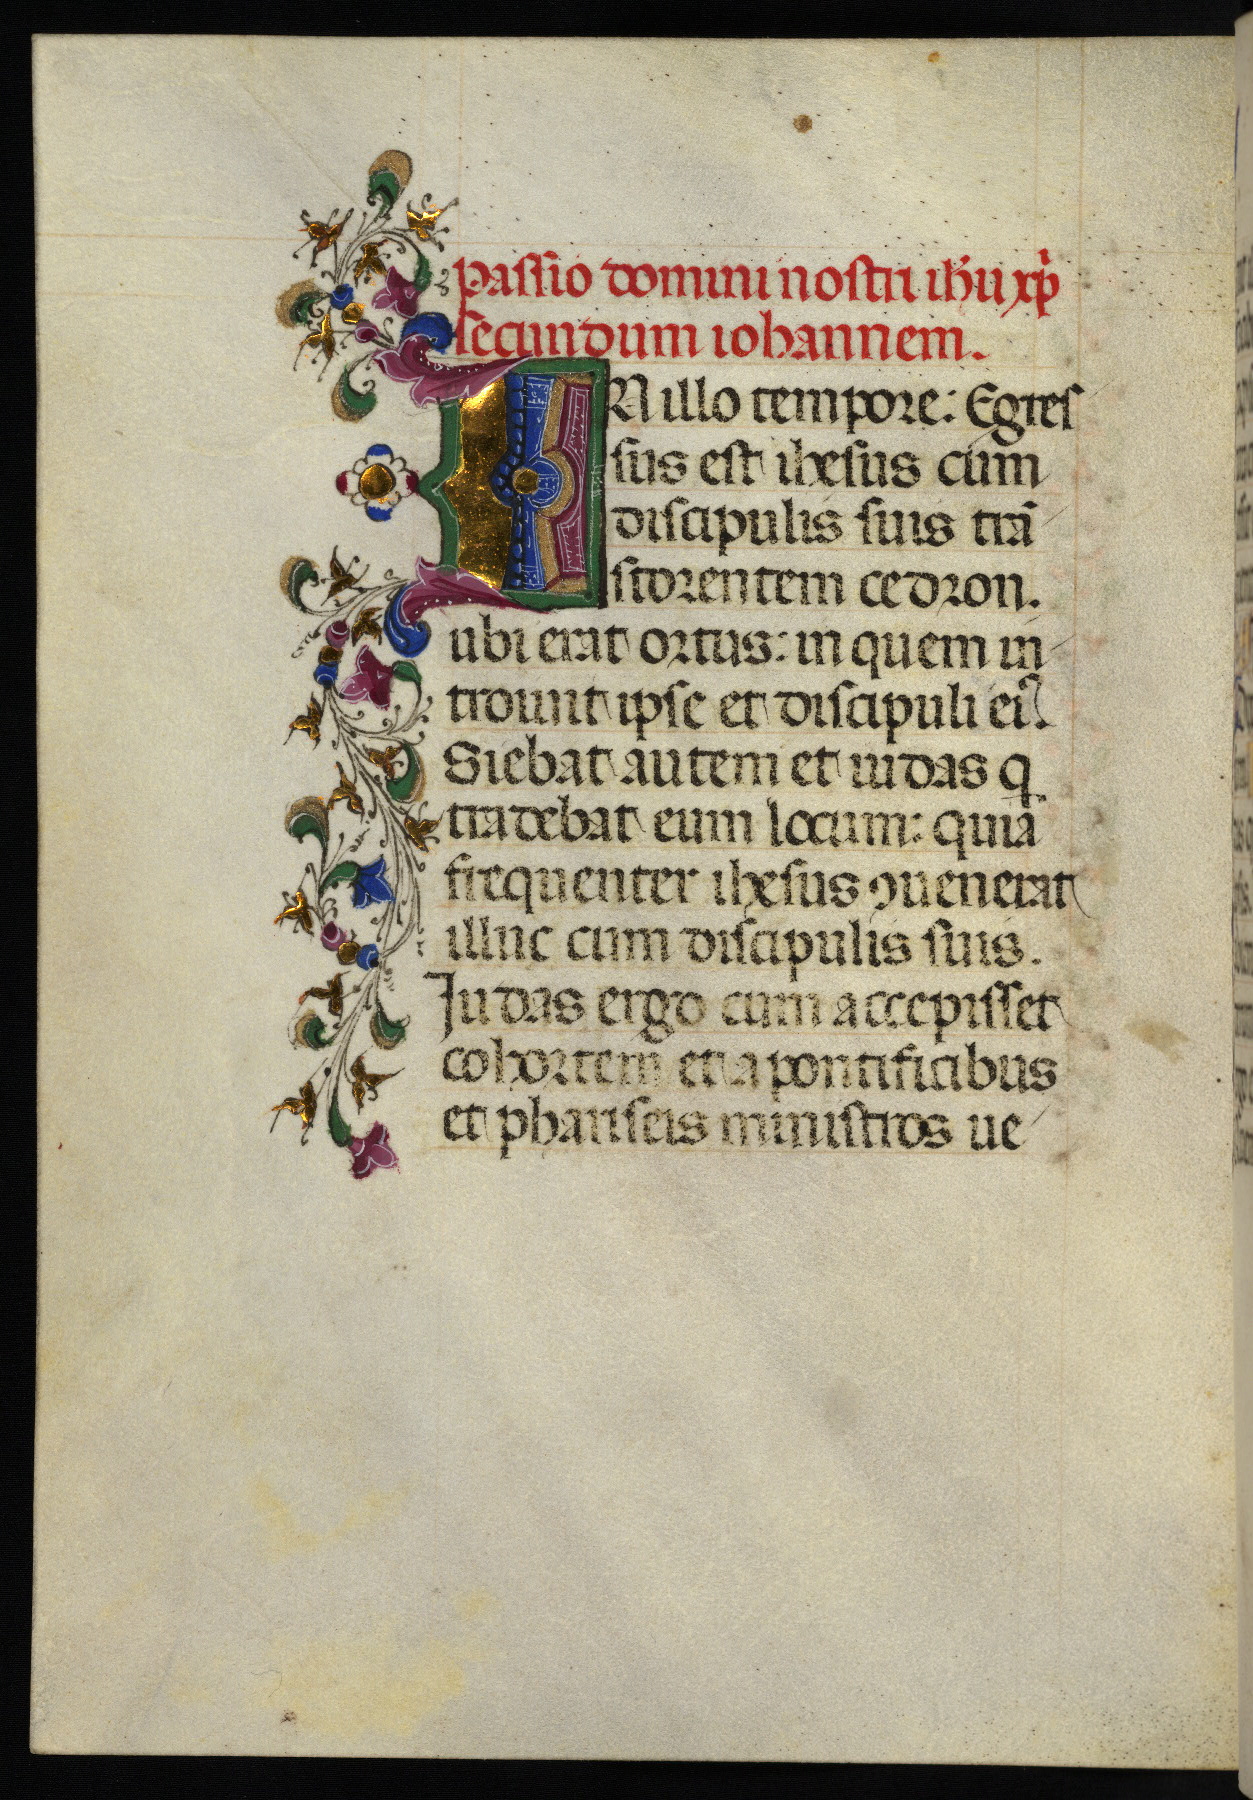 Passio domini nostri ihu xpi
secundum iohannem.
IN illo tempore: Egres
sus est ihesus cum
discipulis suis trã
storrentem cedron.
ubi erat ortus: in quem in
troiuit ipse et discipuli ei⁹.
Siebat autem et iudas q
tradebat eum locum: quia
frequenter ihesus ꝯuenerat
illuc cum discipulis suis.
Iudas ergo cum accepisset
cohortem et a pontificibus
et phariseis ministros ue